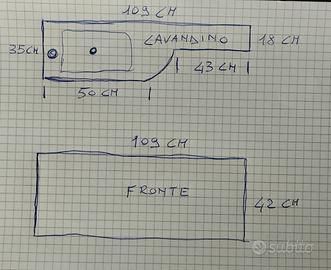 109 CM
LAVANDINO
35CM
18 CM
43 CM
50 CM
109 CM
FRONTE
42 CM
subito